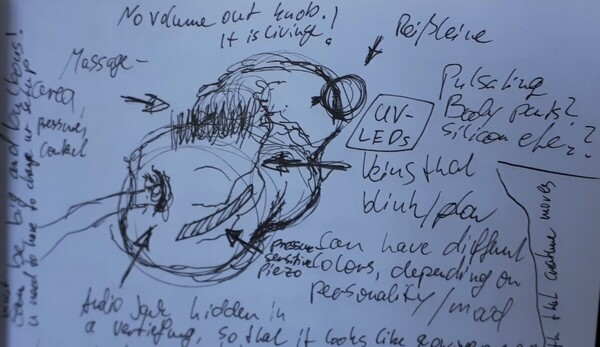 No volume out knob!
It is living!
Massage-
area,
pressure,
contact
Reißleine
UV-
LEDs
Pulsating
Body parts?
Silicon etc.?
Veins that
blink/glow
pressure
sensitive
Piezo
Can have different
colors, depending on
personality/mood
Audio Jack hidden in
a vertiefung, so that it looks like
big and
u need to have to change
that creature moves